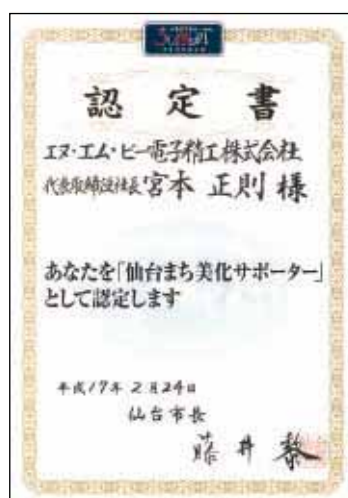 認定書
エヌ・エム・ビー電子精工株式会社
代表取締役社長 宮本 正則 様
あなたを「仙台まち美化サポーター」
として認定します
平成17年2月24日
仙台市長
藤井 黎